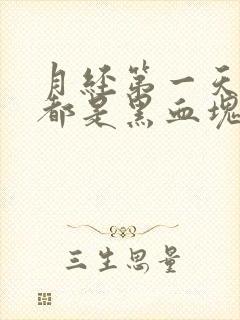 月经第一天
都是黑血块
三生思量